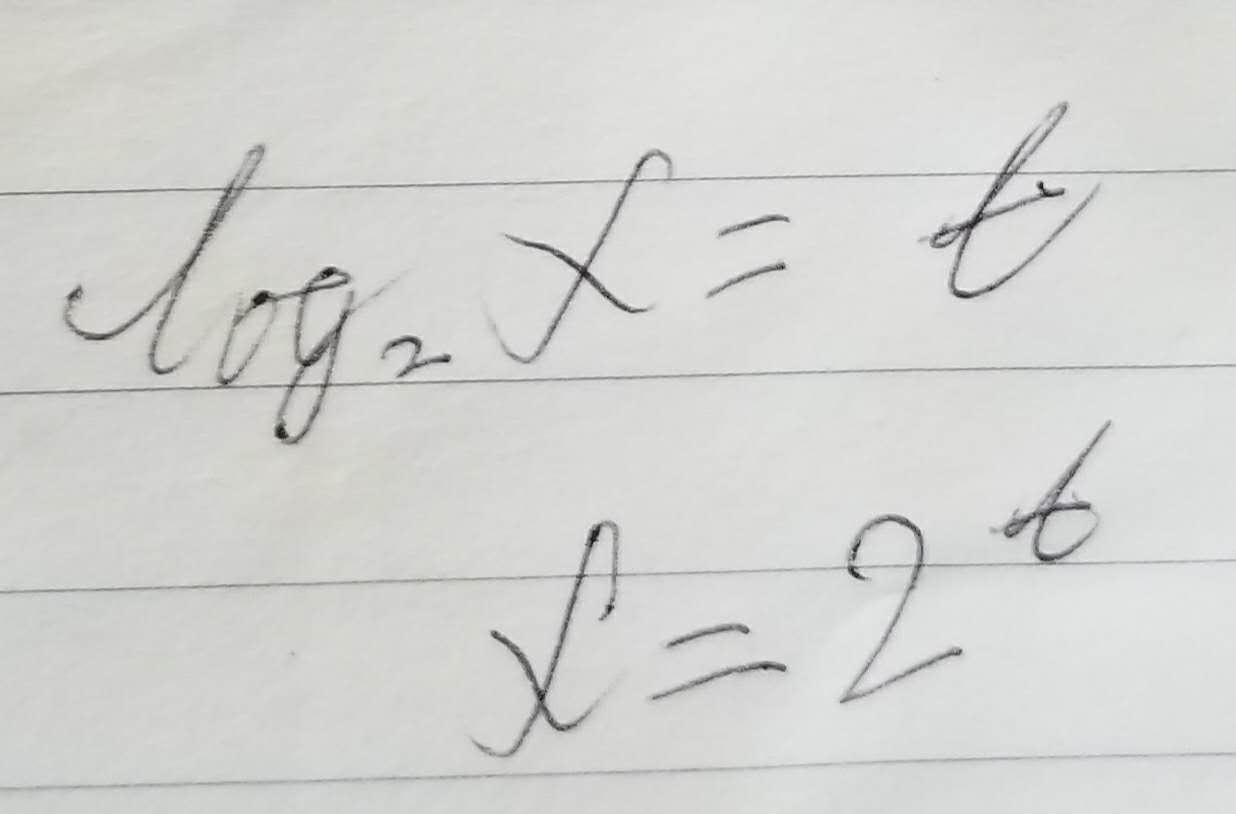 log₂ x = t
x = 2ᵗ